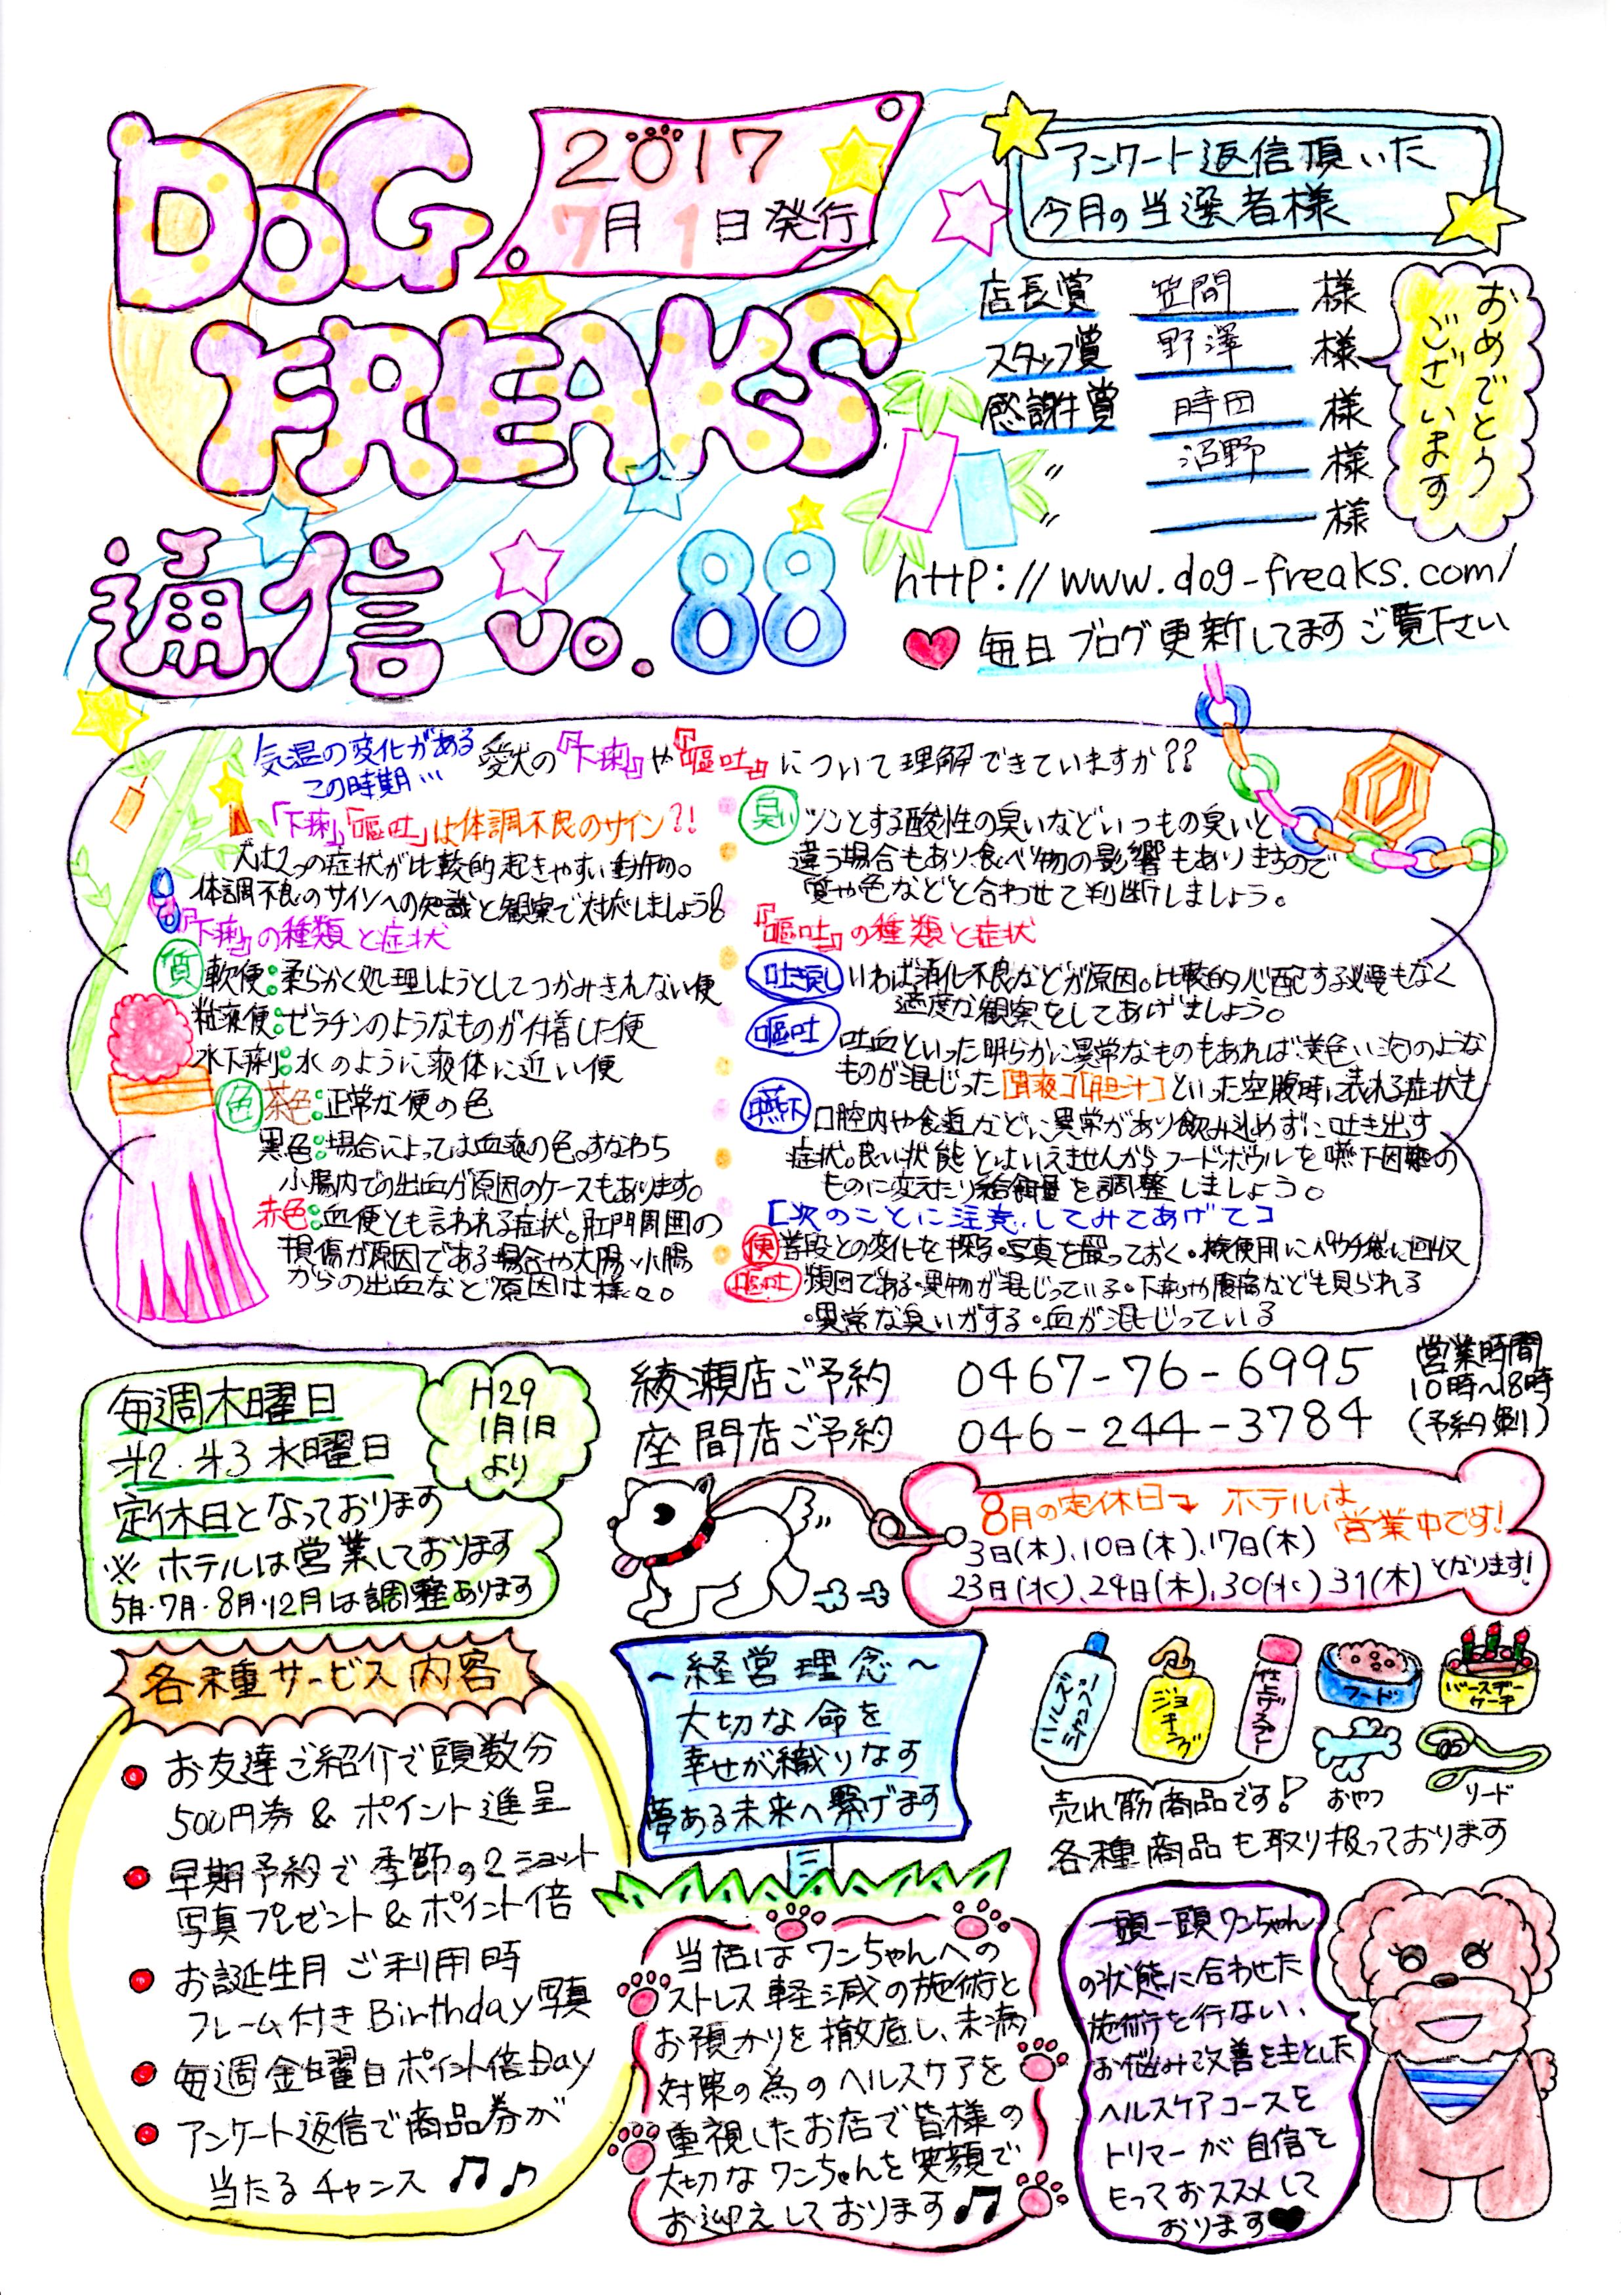 DOG
FREAKS
通信 vo. 88
2017
7月1日発行
アンケート返信頂いた
今月の当選者様
店長賞 笠間 様
スタッフ賞 野澤 様
感謝賞 時田 様
〃 沼野 様
〃 様
おめでとう
ございます
http://www.dog-freaks.com/
毎日ブログ更新してますご覧下さい
気温の変化がある
この時期…
愛犬の『下痢』や『嘔吐』について理解できていますか??
「下痢」「嘔吐」は体調不良のサイン?!
犬は2つの症状が比較的起きやすい動物。
体調不良のサインへの知識と観察で対応しましょう!
『下痢』の種類と症状
質 軟便:柔らかく処理しようとしてつかみきれない便
粘液便:ゼラチンのようなものが付着した便
水下痢:水のように液体に近い便
色 茶色:正常な便の色
黒色:場合によっては血液の色。すなわち
小腸内での出血が原因のケースもあります。
赤色:血便とも言われる症状。肛門周囲の
損傷が原因である場合や大腸・小腸
からの出血など原因は様々。
臭い ツンとする酸性の臭いなどいつもの臭いと
違う場合もあり、食べ物の影響もありますので
質や色などと合わせて判断しましょう。
『嘔吐』の種類と症状
吐き戻し いわば消化不良などが原因。比較的心配する必要もなく
適度な観察をしてあげましょう。
嘔吐 吐血といった明らかに異常なものもあれば、黄色い泡のような
ものが混じった[胃液][胆汁]といった空腹時に表れる症状も
嚥下 口腔内や食道などに異常があり飲み込めずに吐き出す
症状。良い状態とはいえませんからフードボウルを嚥下困難の
ものに変えたり給餌量を調整しましょう。
[次のことに注意してみてあげて]
便 普段との変化を探る・写真を撮っておく・検便用にパウチ袋に回収
嘔吐 頻回である・異物が混じっている・下痢や腹痛なども見られる
・異常な臭いがする・血が混じっている
毎週木曜日
第2.第3水曜日
定休日となっております
※ホテルは営業しております
5月・7月・8月・12月は調整あります
H29
1月1日
より
綾瀬店ご予約 0467-76-6995
座間店ご予約 046-244-3784
営業時間
10時〜18時
(予約制)
8月の定休日 ホテルは
営業中です!
3日(木)、10日(木)、17日(木)
23日(水)、24日(木)、30(水)31(木)となります!
各種サービス内容
お友達ご紹介で頭数分
500円券&ポイント進呈
早期予約で季節の2ショット
写真プレゼント&ポイント倍
お誕生月ご利用時
フレーム付きBirthday写真
毎週金曜日ポイント倍Day
アンケート返信で商品券が
当たるチャンス♫♪
〜経営理念〜
大切な命を
幸せが織りなす
夢ある未来へ繋げます
ハーブズ
シャンプー
ジョキング
仕上げスプレー
フード
バースデー
ケーキ
おやつ
リード
売れ筋商品です!
各種商品も取り扱っております
当店はワンちゃんへの
ストレス軽減の施術と
お預かりを徹底し、未病
対策の為のヘルスケアを
重視したお店で皆様の
大切なワンちゃんを笑顔で
お迎えしております♫
一頭一頭ワンちゃん
の状態に合わせた
施術を行ない、
お悩み改善を主とした
ヘルスケアコースを
トリマーが自信を
もっておススメして
おります♥